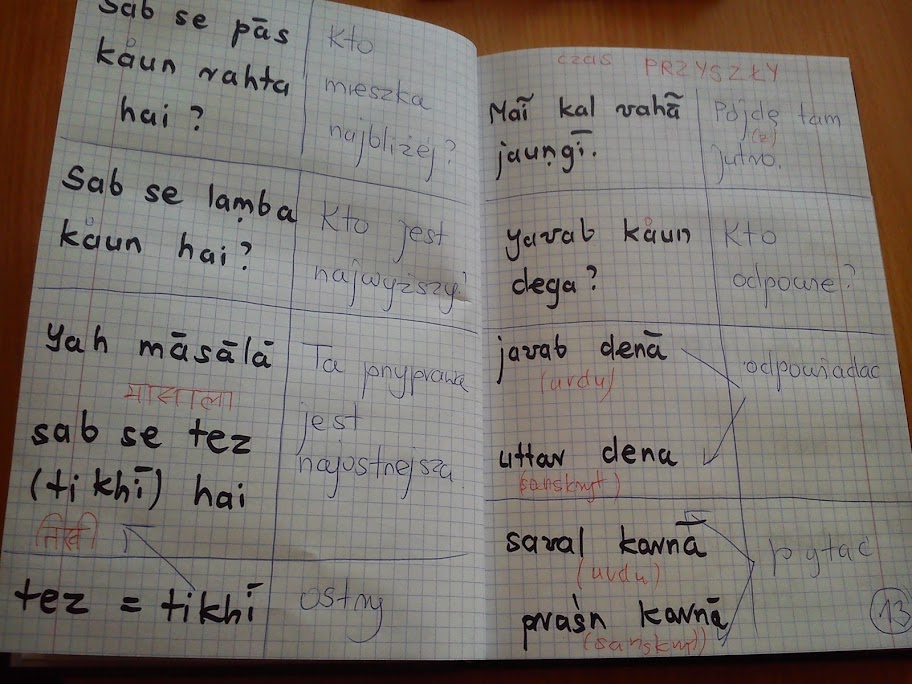 Sab se pās
kåun rahta
hai ?
Kto
mieszka
najbliżej?
Sab se laṃba
kåun hai?
Kto jest
najwyższy?
Yah māsālā
मासाला
sab se tez
(tikhī) hai
तिखी
Ta przyprawa
jest
najostrzejsza.
tez = tikhī
ostry
czas PRZYSZŁY
Maĩ kal vahã
jauṇgī.
Pójdę tam
(ż)
jutro.
yavab kåun
dega?
Kto
odpowie?
javab denā
(urdu)
uttar dena
(sanskryt)
odpowiadać
saval karnā
(urdu)
praśn karnā
(sanskryt)
pytać
13